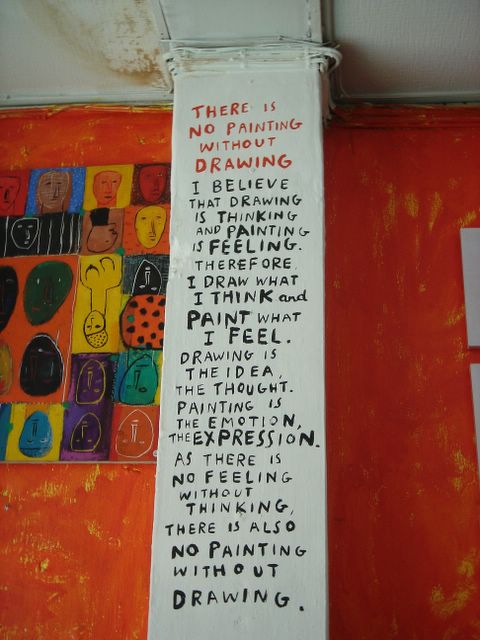 THERE IS
NO PAINTING
WITHOUT
DRAWING
I BELIEVE
THAT DRAWING
IS THINKING
AND PAINTING
IS FEELING.
THEREFORE,
I DRAW WHAT
I THINK and
PAINT WHAT
I FEEL.
DRAWING IS
THE IDEA,
THE THOUGHT.
PAINTING IS
THE EMOTION,
THE EXPRESSION.
AS THERE IS
NO FEELING
WITHOUT
THINKING,
THERE IS ALSO
NO PAINTING
WITHOUT
DRAWING.